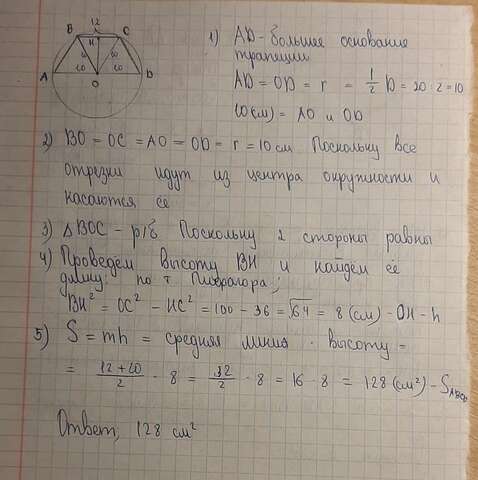 12
B C
H
10 10
A 10 10 D
O
1) AD - большее основание
трапеции
AD = OD = r = 1/2 D = 20 : 2 = 10
10(см) = AO и OD
2) BO = OC = AO = OD = r = 10 см Поскольку все
отрезки идут из центра окружности и
касаются её
3) △BOC - р/б Поскольку 2 стороны равны
4) Проведём высоту BH и найдём её
длину по т Пифагора;
BH² = OC² - HC² = 100 - 36 = √64 = 8 (см) - OH - h
5) S = mh = средняя линия · высоту =
= 12+20/2 · 8 = 32/2 · 8 = 16 · 8 = 128 (см²) - S ABCD
Ответ; 128 см²